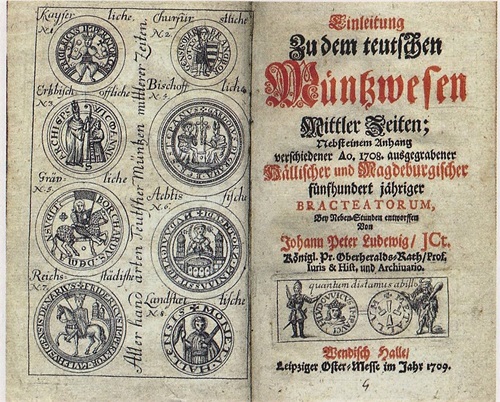 Kayser liche. Churfür stliche
N.1. N.2.
Ertzbisch offliche Bischoff liche
N.3. N.
Gräv liche Aebtis sische
N.5. N.
Reichs städtische Landstæt tische
N.7. N.8.
Aller hand arten Teutscher Müntzen mitterer Zeiten.
MONET
HALLENSIS
BORCHARDUS
Einleitung
Zu dem teutschen
Müntzwesen
Mittler Zeiten;
Nebst einem Anhang
verschiedener Ao, 1708. ausgegrabener
Hällischer und Magdeburgischer
fünfhundert jähriger
BRACTEATORUM,
Bey Neben-Stunden entworffen
Von
Johann Peter Ludewig/ JCt.
Königl. Pr. Oberheralds-Rath/ Prof.
Iuris & Hist, und Archivatio.
quantum distamus ab illo
Wendisch Halle/
Leipziger Oster-Messe im Jahr 1709.